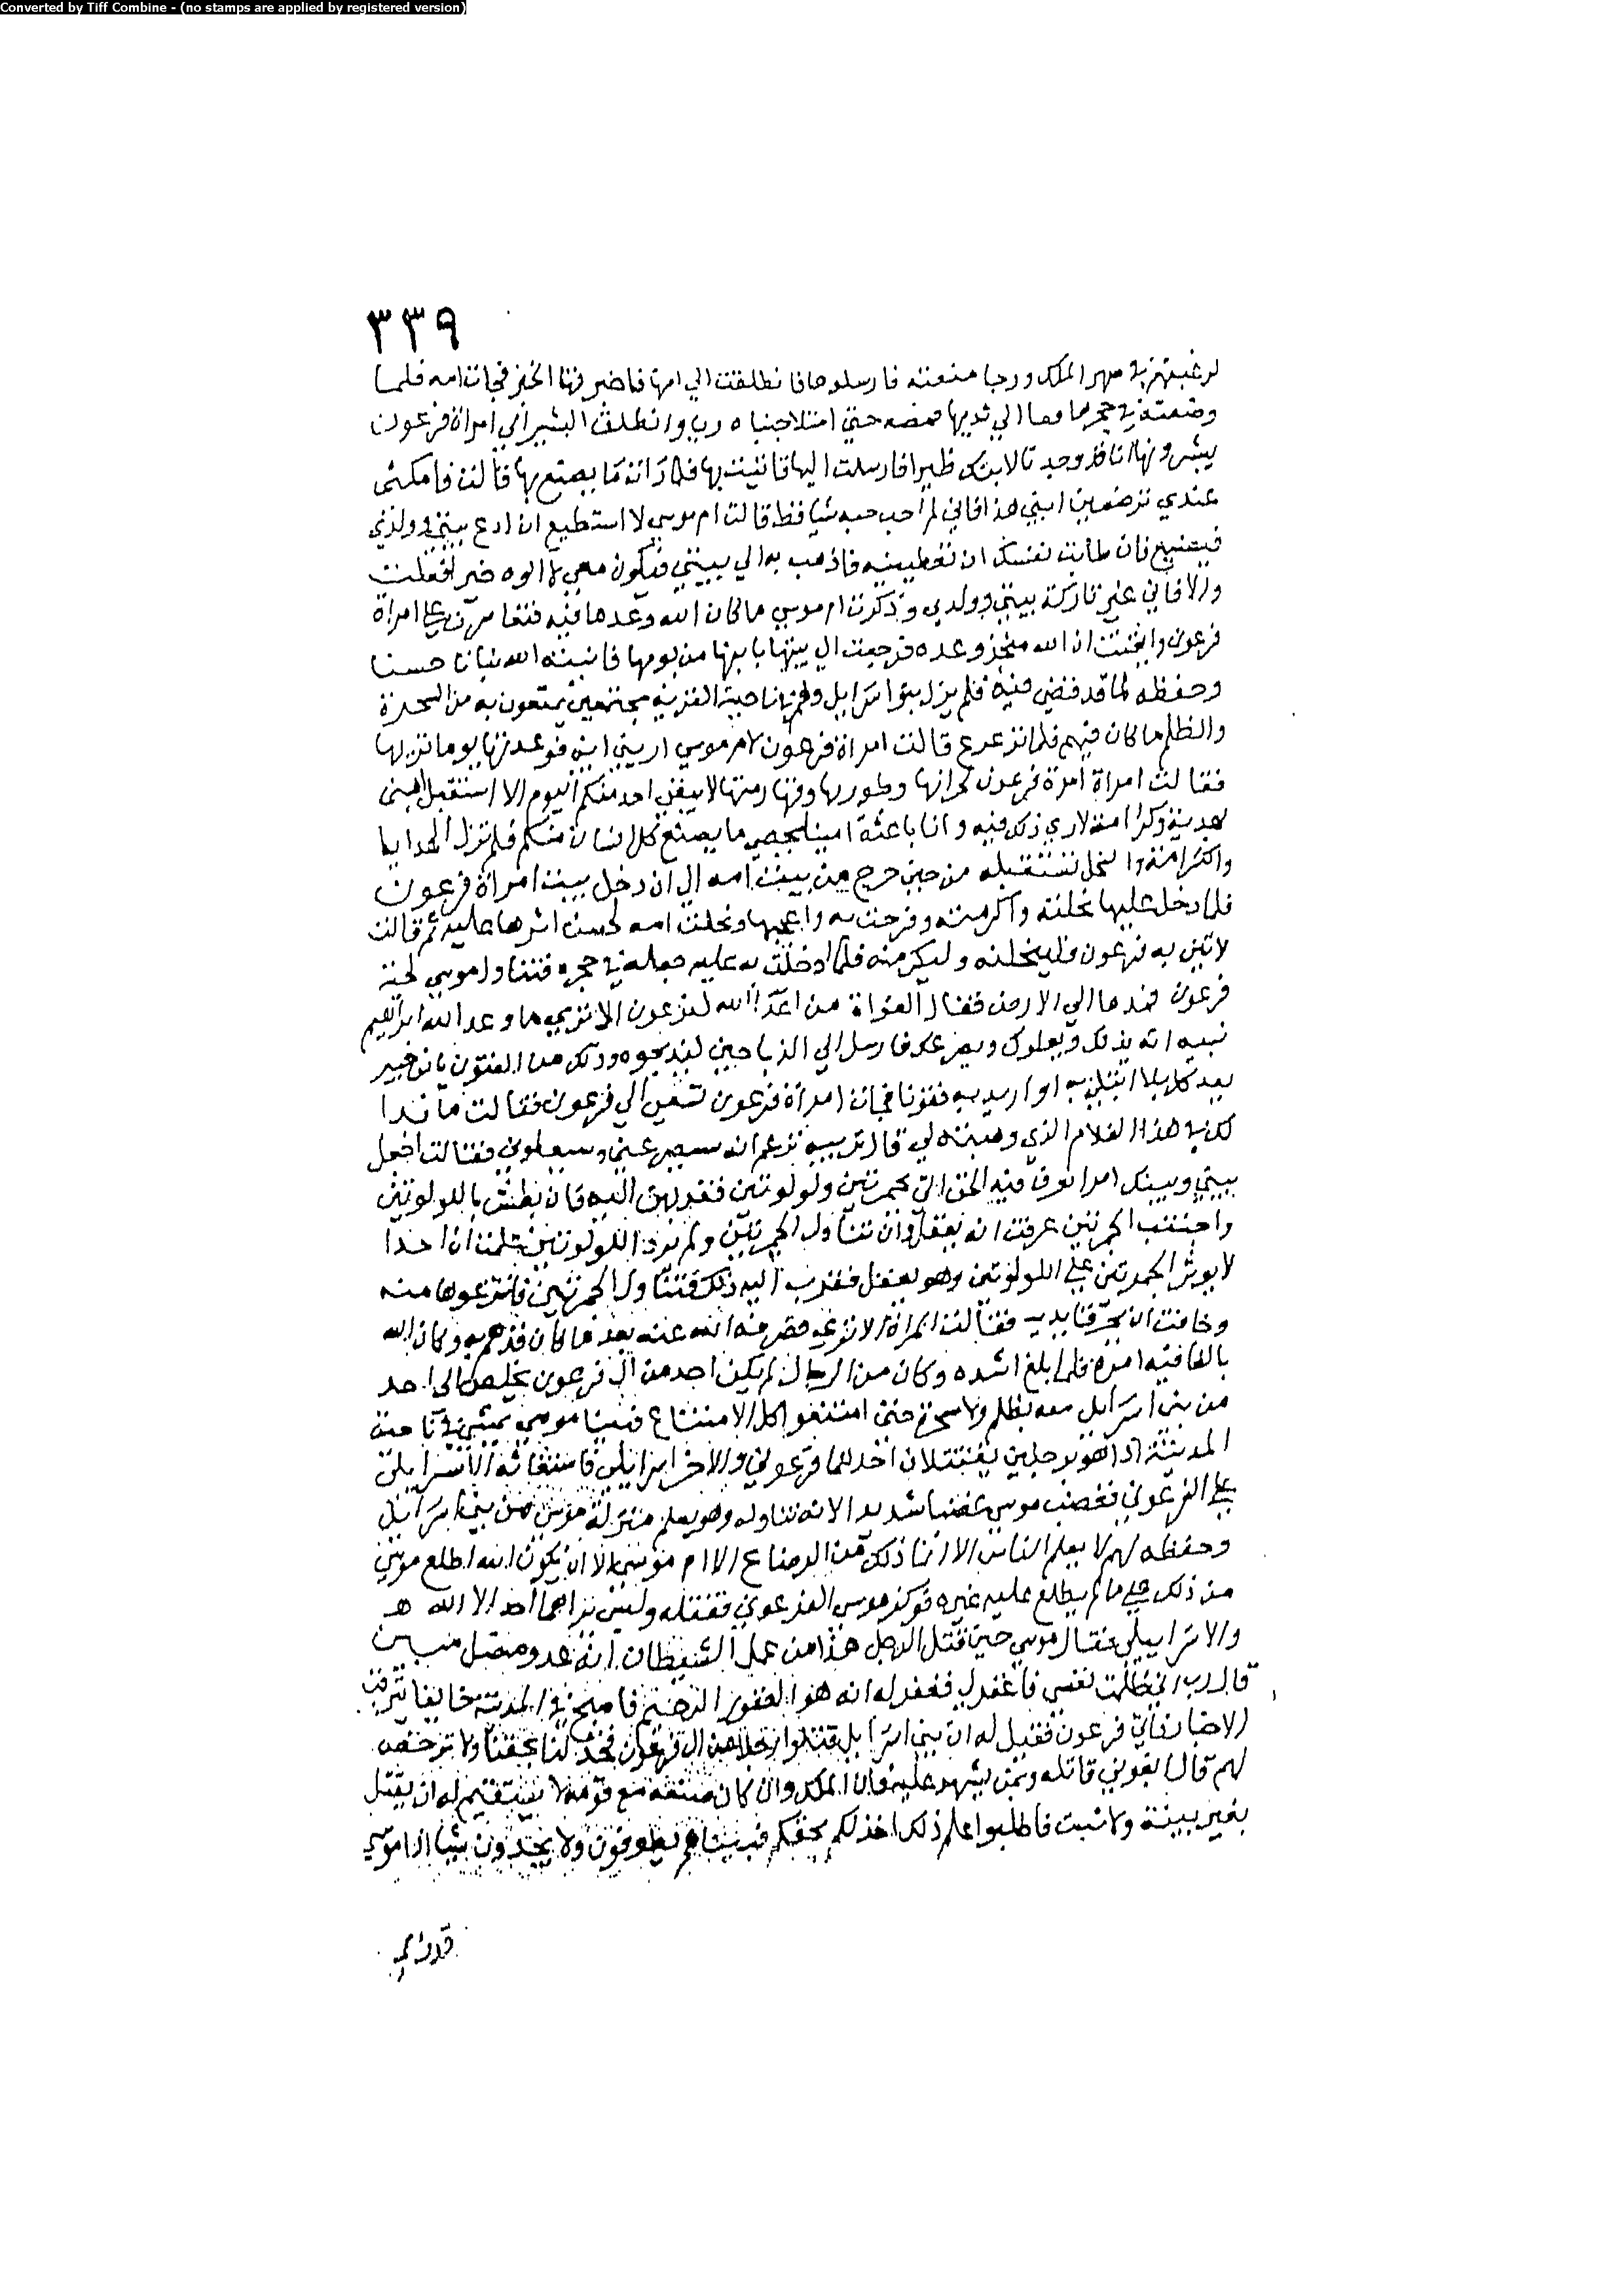 Converted by Tiff Combine - (no stamps are applied by registered version)
٣٣٩
لرغبتهم في صهر الملك ورجا منفعته فارسلوها فانطلقت الي امها فاخبرتها الخبر فجات امه فلما
وضعته في حجرها نزا الي ثديها فمصه حتي امتلا جنباه ريا وانطلق البشير الي امراة فرعون
يبشرونها انا قد وجدنا لابنك ظيرا فارسلت اليها فاتيت بها فلما رات ما يصنع بها قالت فامكثي
عندي ترضعين ابني هذا فاني لم احب حبه شيا قط قالت ام موسي لا استطيع ان ادع بيتي وولدي
فيضيع فان طابت نفسك ان تعطينيه فاذهب به الي بيتي فيكون معي لا الوه خيرا فعلت
والا فاني غير تاركة بيتي وولدي وذكرت ام موسي ما كان الله وعدها فيه فتعاسرت علي امراة
فرعون وايقنت ان الله منجز وعده فرجعت الي بيتها بابنها من يومها فانبته الله نباتا حسنا
وحفظه لما قد قضي فيه فلم يزل بنوا اسرايل وهم في ناحية القرية مجتمعين يمتنعون به من السحرة
والظلم ما كان فيهم فلما ترعرع قالت امراة فرعون لام موسي اريني ابني فوعدتها يوما تزيرها
فقالت امراة فرعون لخزانها وظورها وقهارمتها لا يبقي احد منكم اليوم الا استقبل ابني
بهدية وكرامة لاري ذلك فيه وانا باعثة امينا يحصي ما يصنع كل انسان منكم فلم تزل الهدايا
والكرامة والنحل تستقبله من حين خرج من بيت امه الي ان دخل بيت امراة فرعون
فلما دخل عليها نحلته واكرمته وفرحت به واعجبها ونحلت امه لحسن اثرها عليه ثم قالت
لاتين به فرعون فلينحلنه وليكرمنه فلما دخلت به عليه جعله في حجره فتناول موسي لحية
فرعون فمدها الي الارض فقال الغواة من اعدا الله لفرعون الا تري ما وعد الله ابراهيم
نبيه انه يرثك ويعلوك ويصرعك فارسل الي الذباحين ليذبحوه وذلك من الفتون يا ابن جبير
بعد كل بلا ابتلي به او اريد به فتونا فجات امراة فرعون تسعي الي فرعون فقالت ما بدا
لك في هذا الغلام الذي وهبته لي قال ترينه يزعم انه سيصرعني وسيعلوني فقالت اجعل
بيني وبينك امرا تعرف فيه الحق ايت بجمرتين ولولوتين فقربهن اليه فان بطش باللولوتين
واجتنب الجمرتين عرفت انه يعقل وان تناول الجمرتين ولم يرد اللولوتين علمت ان احدا
لا يوثر الجمرتين علي اللولوتين وهو يعقل فقرب اليه ذلك فتناول الجمرتين فانتزعوهما منه
وخافت ان يحرقا يديه فقالت المراة الا تري فصرفه الله عنه بعد ما كان قد هم به وكان الله
بالغا فيه امره فلما بلغ اشده وكان من الرجال لم يكن احد من ال فرعون يخلص الي احد
من بني اسرايل معه بظلم ولا سخرة حتي امتنعوا كل الامتناع فبينا موسي يمشي في ناحية
المدينة اذا هو برجلين يقتتلان احدهما فرعوني والاخر اسرايلي فاستغاثه الاسرايلي
علي الفرعوني فغضب موسي غضبا شديدا لانه تناوله وهو يعلم منزلة موسي من بني اسرايل
وحفظه لهم لا يعلم الناس الا انما ذلك من الرضاع الا ام موسي الا ان يكون الله اطلع موسي
من ذلك علي ما لم يطلع عليه غيره فوكز موسي الفرعوني فقتله وليس يراهما احد الا الله
والاسراييلي فقال موسي حين قتل الرجل هذا من عمل الشيطان انه عدو مضل مبين
قال رب اني ظلمت نفسي فاغفر لي فغفر له انه هو الغفور الرحيم فاصبح في المدينة خايفا يترقب
الاخبار فاتي فرعون فقيل له ان بني اسرايل قتلوا رجلا من ال فرعون فخذ لنا بحقنا ولا ترخص
لهم قال ابغوني قاتله ومن يشهد عليه فان الملك وان كان صفته مع قومه لا يستقيم له ان يقتل
بغير بينة ولا ثبت فاطلبوا علم ذلك اخذ لكم بحقكم فبينا هم يطوفون ولا يجدون شيا اذا موسي